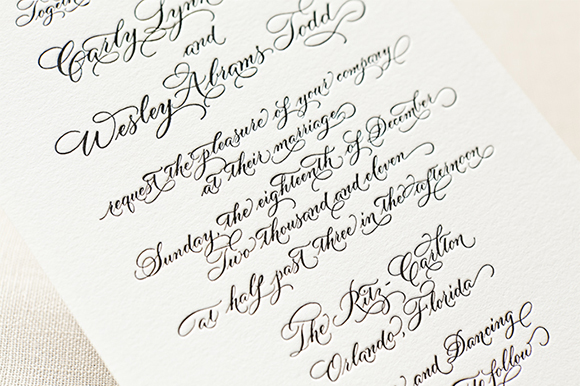 Together
Carly Lynn
and
Wesley Abrams-Todd
request the pleasure of your company
at their marriage
Sunday, the eighteenth of December
Two thousand and eleven
at half past three in the afternoon
The Ritz-Carlton
Orlando, Florida
and Dancing
to follow